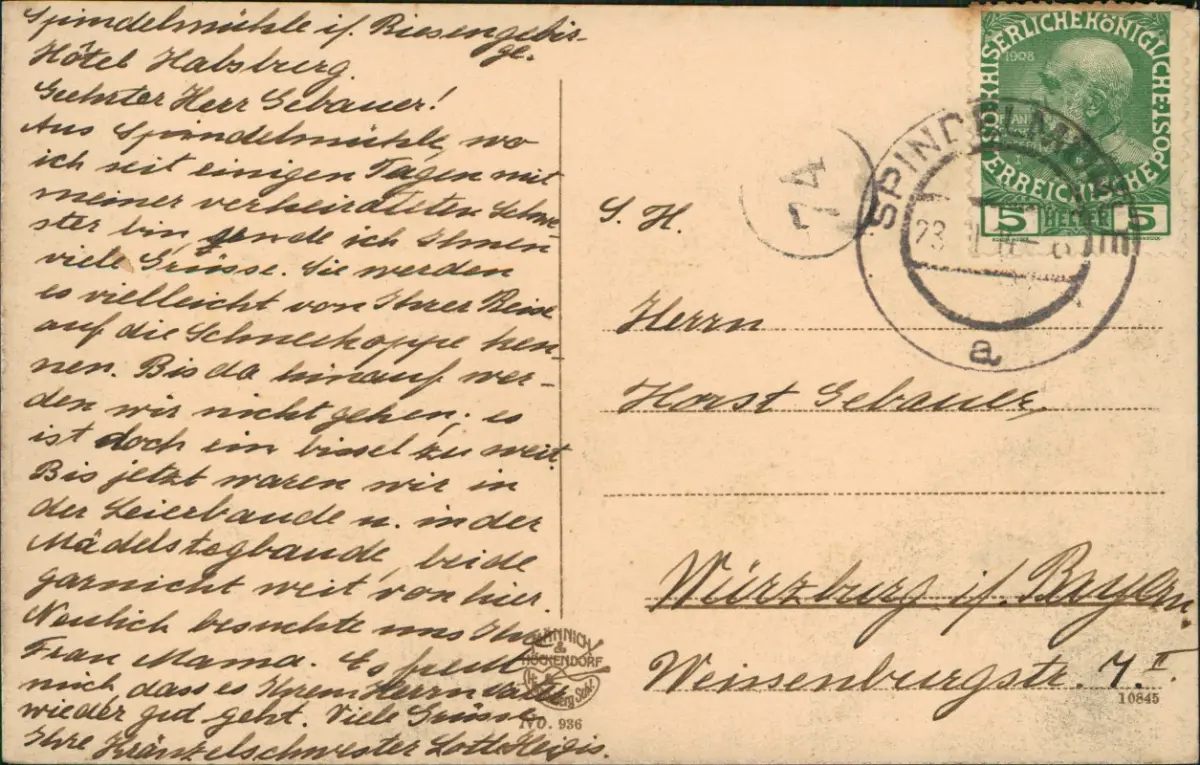 Spindelmühle i/. Riesengebir-
ge.
Hôtel Habsburg.
Geehrter Herr Gebauer!
Aus Spindelmühle, wo
ich seit einigen Tagen mit
meiner verheirateten Schwe-
ster bin, sende ich Ihnen
viele Grüsse. Sie werden
es vielleicht von Ihrer Reise
auf die Schneekoppe ken-
nen. Bis da hinauf wer-
den wir nicht gehen, es
ist doch ein bissel zu weit.
Bis jetzt waren wir in
der Leierbaude u. in der
Mädelstegbaude, beide
garnicht weit von hier.
Neulich besuchte uns Ihre
Frau Mama. Es freut
mich, dass es Ihrem Herrn Vater
wieder gut geht. Viele Grüsse
Ihre Kränzelschwester Lotte
S. H.
Herrn
Horst Gebauer,
Würzburg i/. Bayern.
Weissenburgstr. 7. II.
KAISERLICHE KÖNIGLICHE
ÖSTERREICHISCHE POST
1908
5 HELLER 5
SPINDELMÜHLE
23
a
74
HÖCKENDORF
NO. 936
10845